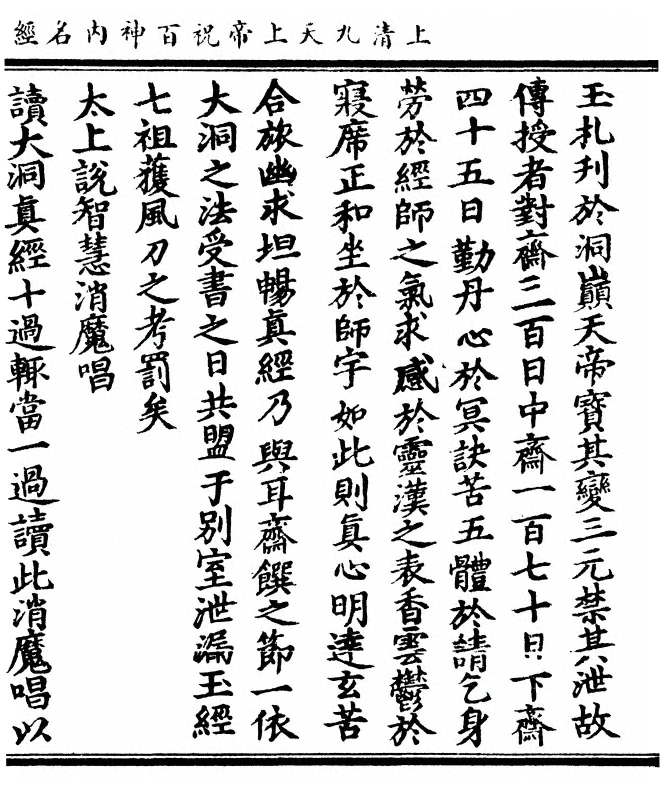 上清九天上帝祝百神内名經
玉札刋於洞巔天帝寶其變三元禁其泄故
傳授者對齋三百日中齋一百七十日下齋
四十五日勤丹心於冥訣苦五體於請乞身
勞於經師之氣求感於靈漢之表香雲鬱於
寢席正和坐於師宇如此則真心明達玄苦
合於幽求坦暢真經乃與耳齋饌之節一依
大洞之法受書之日共盟于别室泄漏玉經
七祖獲風刀之考罰矣
太上說智慧消魔唱
讀大洞真經十過輙當一過讀此消魔唱以